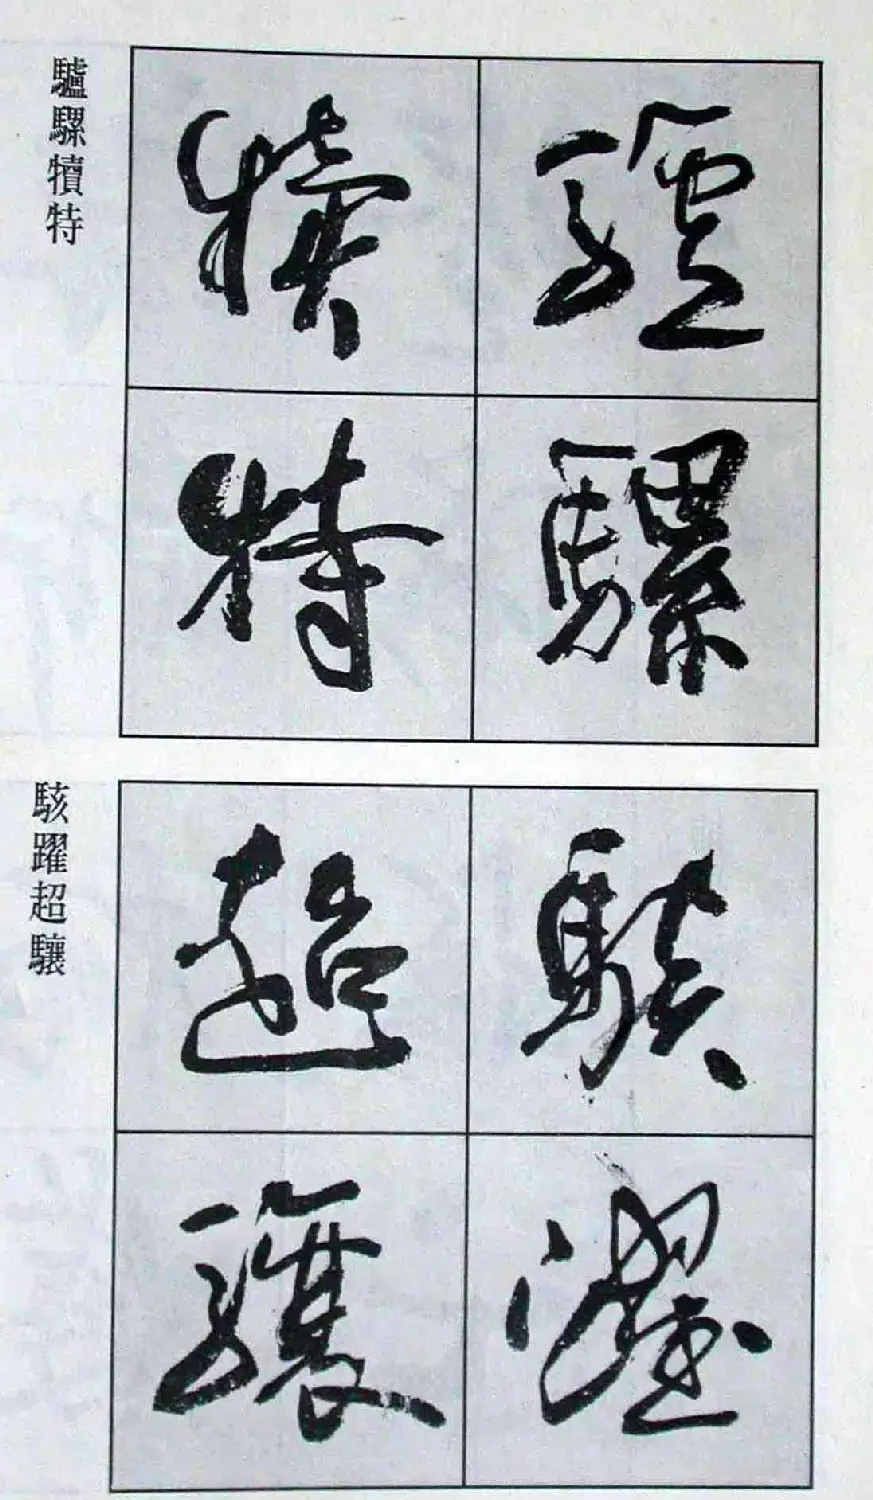 驢騾犢特
驢騾
犢特
駭躍超驤
駭躍
超驤